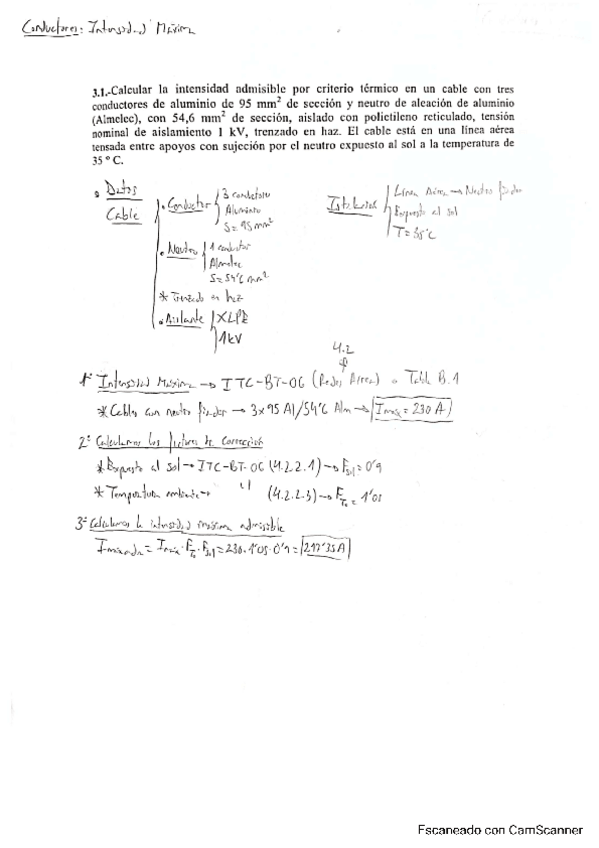 Conductores: Intensidad Máxima
3.1.-Calcular la intensidad admisible por criterio térmico en un cable con tres
conductores de aluminio de 95 mm² de sección y neutro de aleación de aluminio
(Almelec), con 54,6 mm² de sección, aislado con polietileno reticulado, tensión
nominal de aislamiento 1 kV, trenzado en haz. El cable está en una línea aérea
tensada entre apoyos con sujeción por el neutro expuesto al sol a la temperatura de
35 º C.
Datos
Cable
• Conductor
3 conductores
Aluminio
S=95mm²
• Neutro
1 conductor
Almelec
S=54'6 mm²
* Trenzado en haz
• Aislante
XLPE
1kV
Línea Aérea → Neutro fiador
Expuesto al sol
T=35ºC
4.2
1º Intensidad Máxima → ITC-BT-06 (Redes Aéreas) Tabla B.1
* Cables con neutro fiador → 3x95 Al/54'6 Alm → Imax = 230 A
2º Calculamos los factores de corrección
* Expuesto al sol → ITC-BT-06 (4.2.2.1) → Fsol = 0'9
* Temperatura ambiente → " (4.2.2.3) → FTº = 1'05
3º Calculamos la intensidad máxima admisible
= Imax · FTº · Fsol = 230 · 1'05 · 0'9 = 217'35A
Escaneado con CamScanner